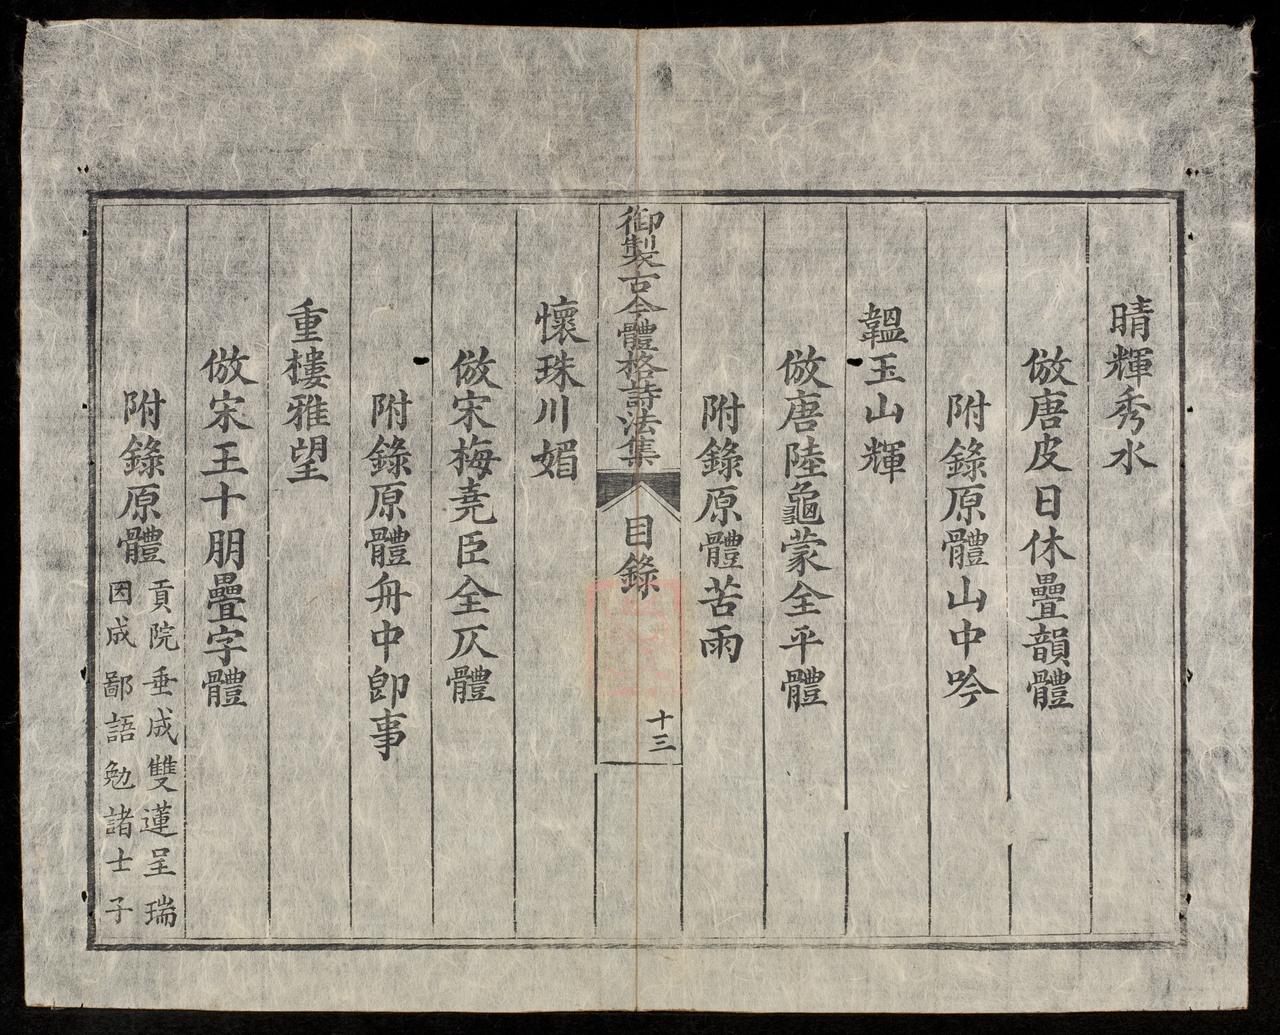 晴輝秀水
倣唐皮日休疊韻體
附錄原體山中吟
韞玉山輝
倣唐陸龜蒙全平體
附錄原體苦雨
御製古今體格詩法集
目錄
十三
懷珠川媚
倣宋梅堯臣全仄體
附錄原體舟中卽事
重樓雅望
倣宋王十朋疊字體
附錄原體
貢院垂成雙蓮呈瑞
因成鄙語勉諸士子